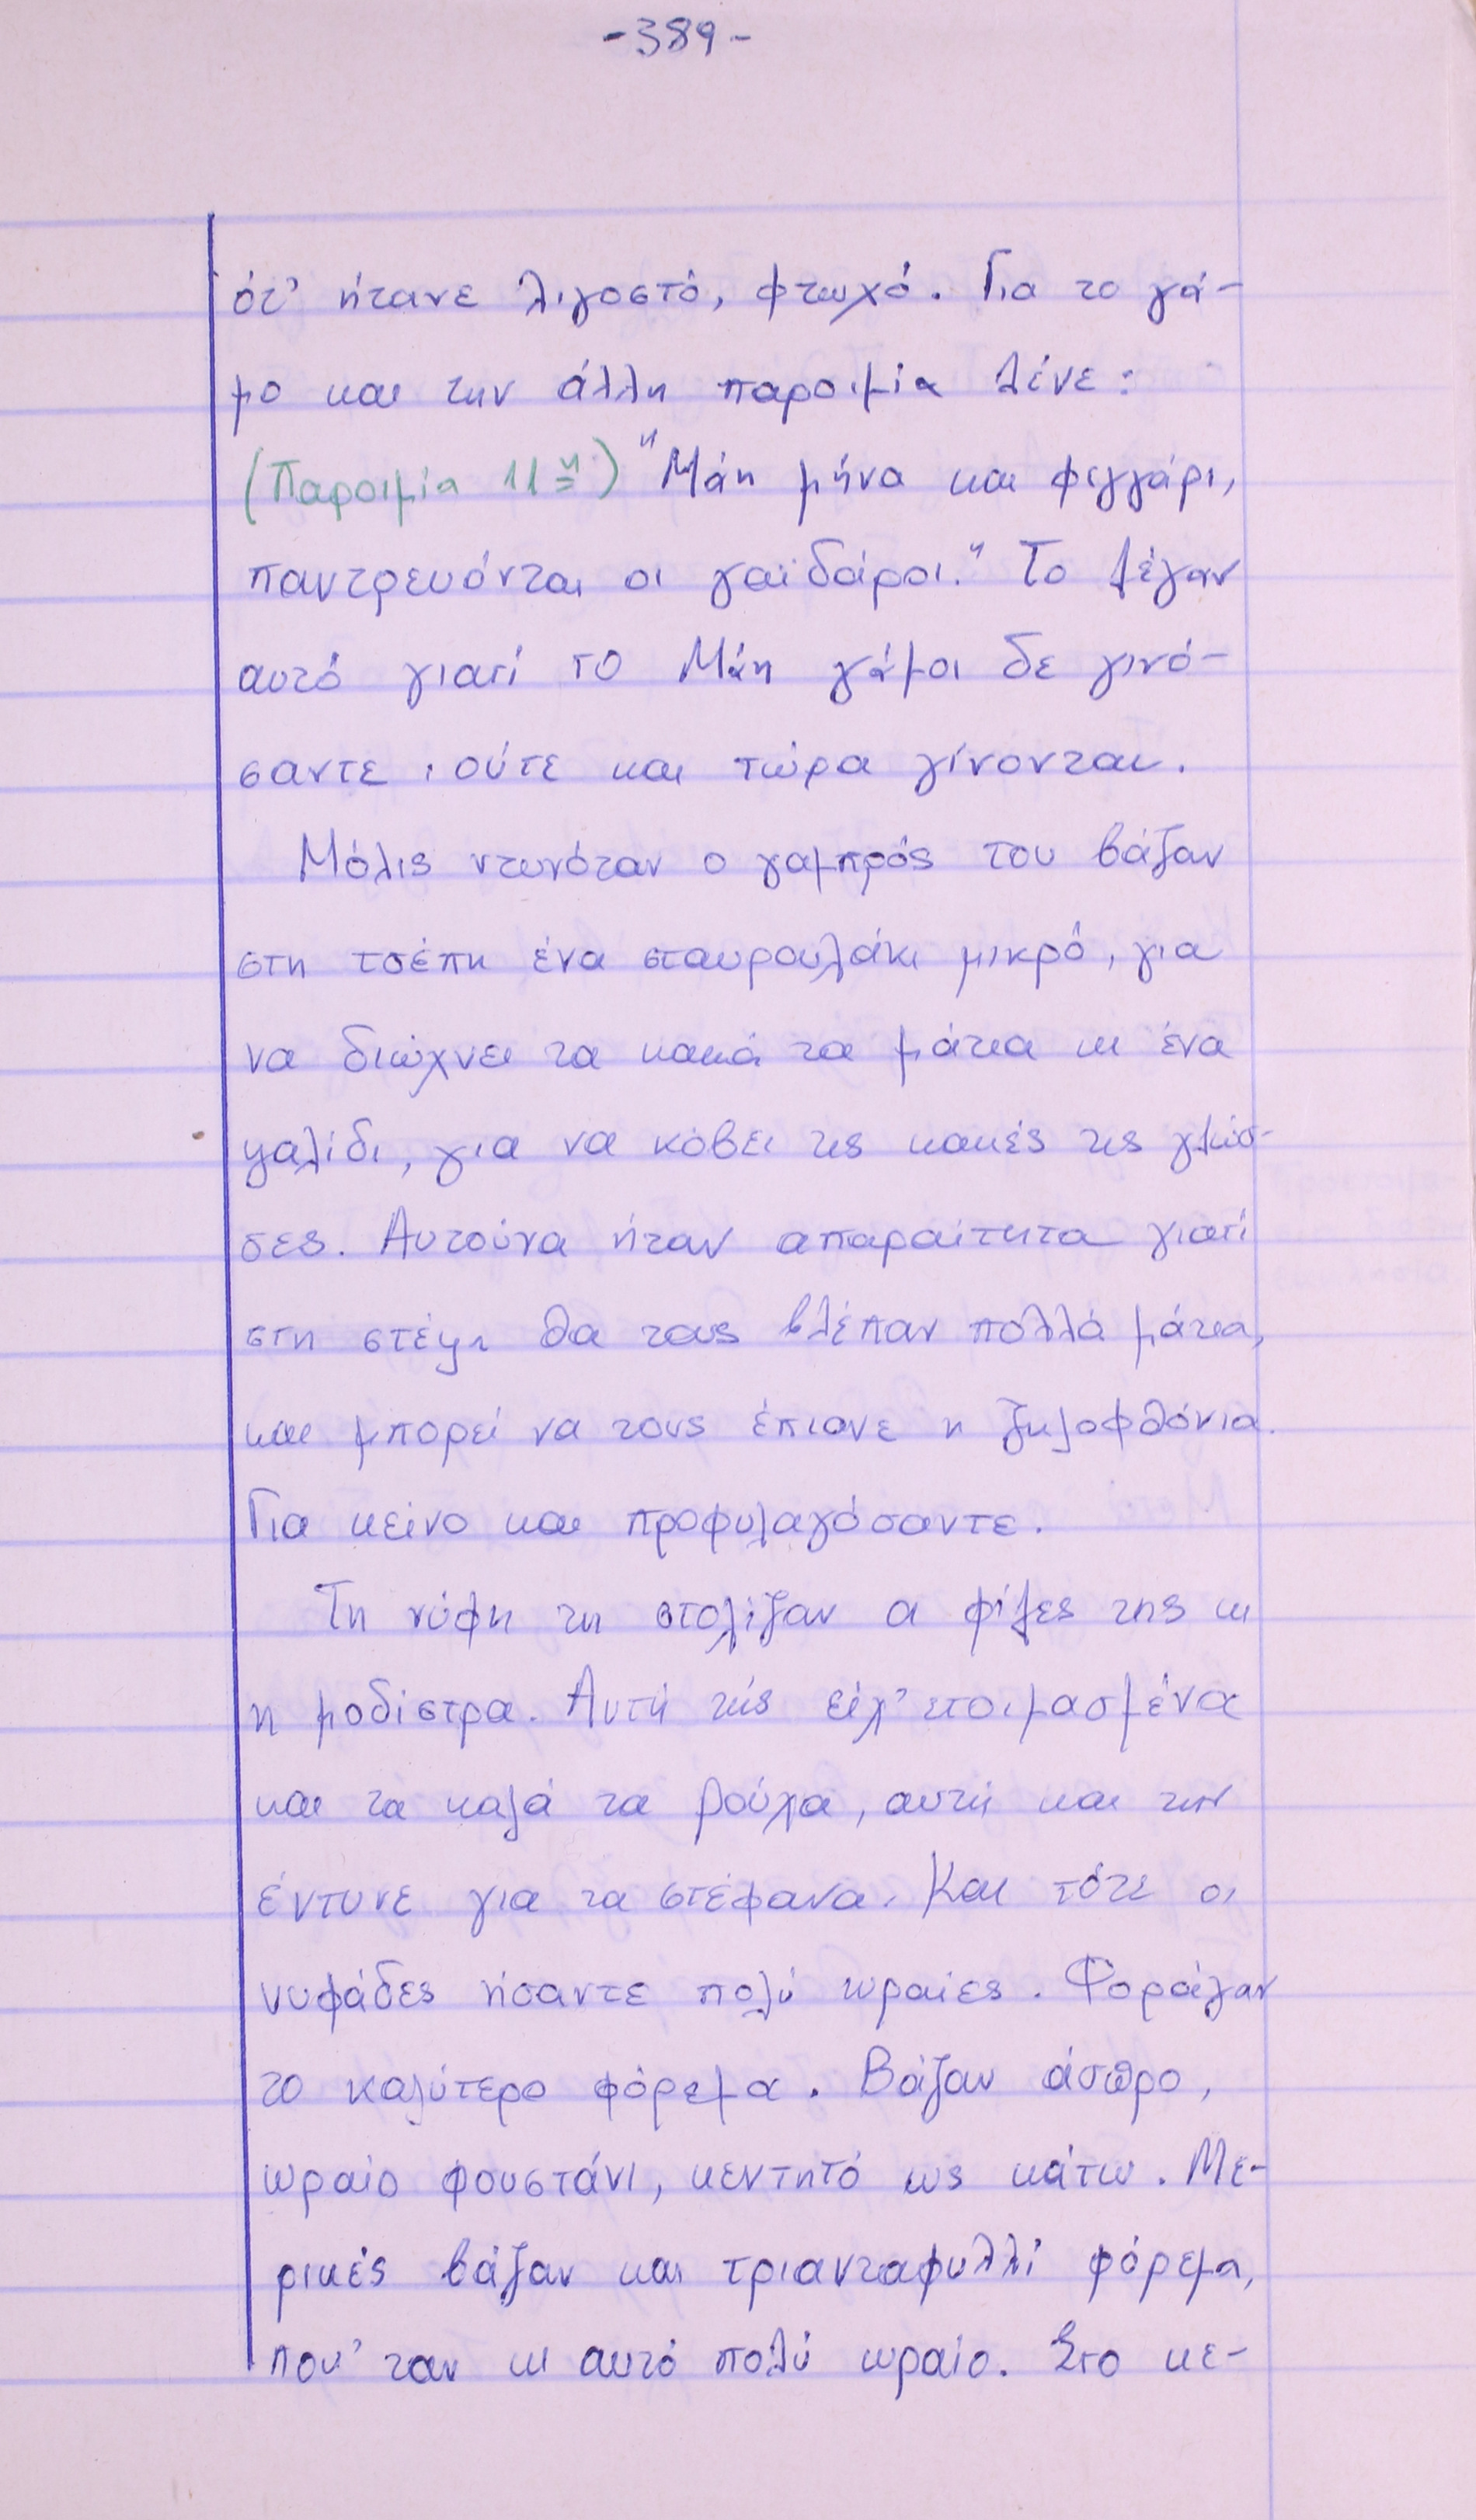 -389-
ότ' ήτανε λιγοστό, φτωχό. Για το γά-
μο και την άλλη παροιμία λένε:
(Παροιμία 11η) "Μάη μήνα και φεγγάρι,
παντρευόνται οι γαϊδάροι." Το λέγαν
αυτό γιατί το Μάη γάμοι δε γινό-
σαντε, ούτε και τώρα γίνονται.
Μόλις ντυνόταν ο γαμπρός του βάζαν
στη τσέπη ένα σταυρουλάκι μικρό, για
να διώχνει τα κακά τα μάτια κι ένα
ψαλίδι, για να κόβει τις κακές τις γλώσ-
σες. Αυτούνα ήταν απαραίτητα γιατί
στη στέψη θα τους βλέπαν πολλά μάτια,
και μπορεί να τους έπιανε η ζηλοφθόνια.
Για κείνο και προφυλαγόσαντε.
Τη νύφη τη στολίζαν οι φίλες της κι
η μοδίστρα. Αυτή τής είχ' ετοιμασμένα
και τα καλά τα ρούχα, αυτή και την
έντυνε για τα στέφανα. Και τότε οι
νυφάδες ήσαντε πολύ ωραίες. Φοράγαν
το καλύτερο φόρεμα. Βάζαν άσπρο,
ωραίο φουστάνι, κεντητό ως κάτω. Με-
ρικές βάζαν και τριανταφυλλί φόρεμα,
που' ταν κι αυτό πολύ ωραίο. Στο κε-